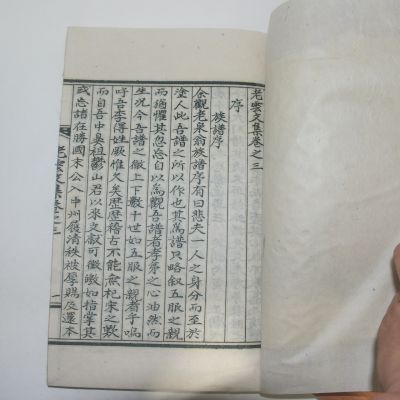 老雲文集卷之三
序
族譜序
余觀老泉翁族譜序有曰悲夫一人之身分而至於
塗人此吾譜之所以作也其爲譜只略叙五服之親
而猶懼其忽忘自以爲觀吾譜者孝悌之心油然而
生況今吾譜之縱上下數十世如五服之親者乎嗚
呼吾李得姓厥惟久矣歷歷稽古不能無杞宋之歎
而自吾中臭祖鬱山君以來文獻可徵皦如指掌其
或忘諸在勝國末公入中州履淸秩被厚賜及還本
老雲文集卷之三 一